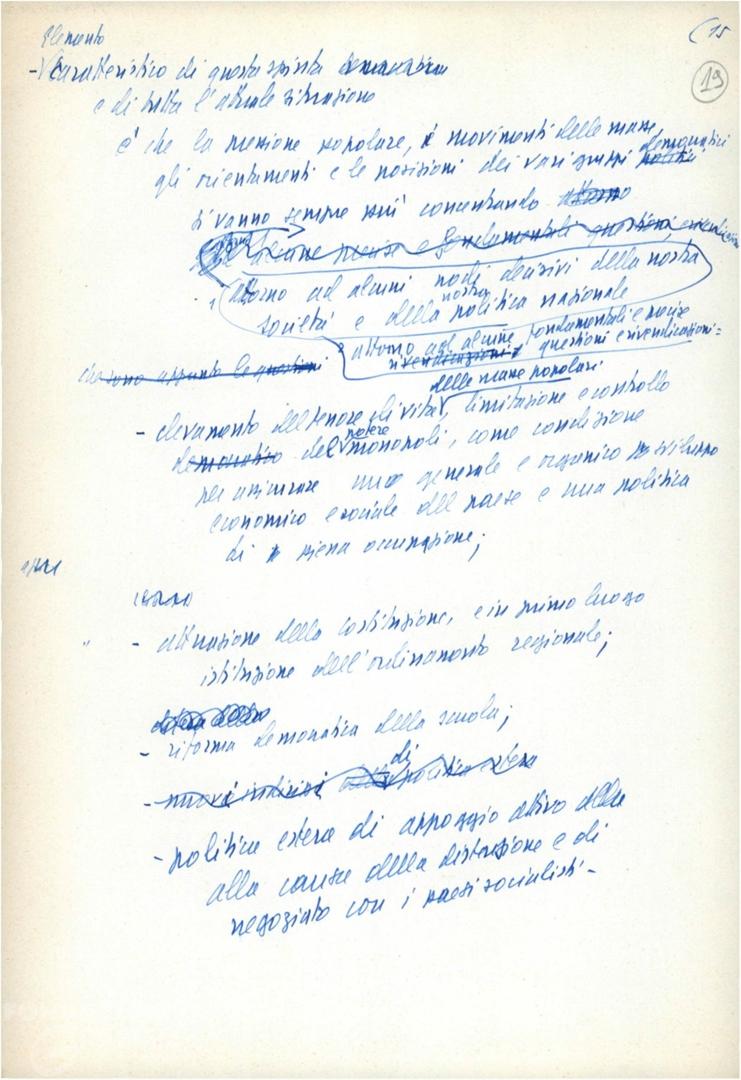 (15
19
Elemento
- Caratteristico di questa spinta democratica
e di tutta l'attuale situazione
è che la pressione popolare, i movimenti delle masse,
gli orientamenti e le posizioni dei vari gruppi politici democratici
si vanno sempre più concentrando attorno
alcune precise e fondamentali questioni,
attorno ad alcuni nodi decisivi della nostra
società e della nostra politica nazionale
attorno ad alcune fondamentali e precise
rivendicazioni questioni e rivendicazioni:
che sono appunto le questioni
delle masse popolari
- elevamento del tenore di vita, limitazione e controllo
democratico del potere monopoli, come condizione
per assicurare uno generale e organico sviluppo
economico e sociale del paese e una politica
di piena occupazione;
- attuazione della costituzione, e in primo luogo
istituzione dell'ordinamento regionale;
- riforma democratica della scuola;
- nuovi indirizzi di politica estera
- politica estera di appoggio attivo della
alla causa della distensione e di
negoziato con i paesi socialisti -